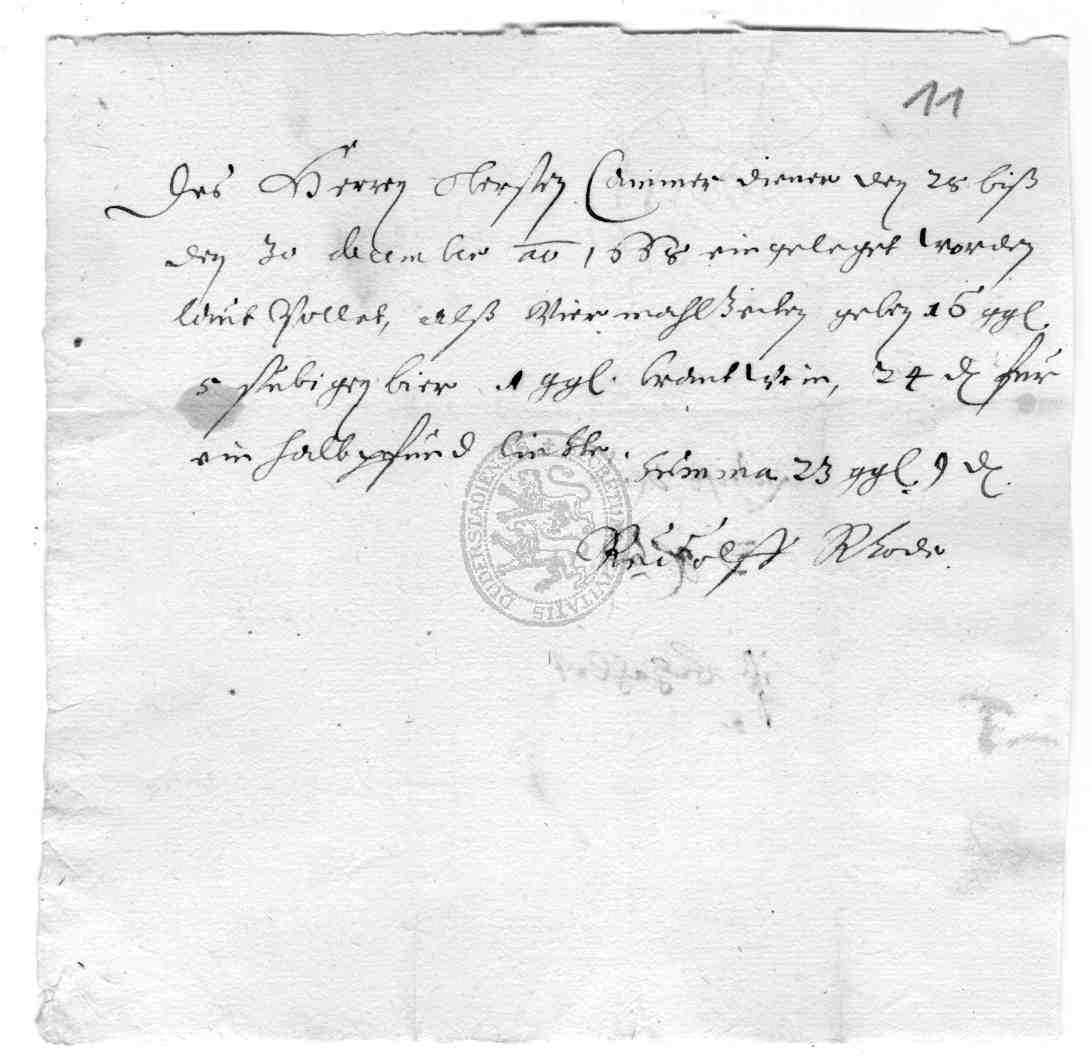 11
Des Herren Obersten Cammer diener den 28 biß
den 30 decembr ao 1668 eingeleget worden
laut Pollet, alß Vier mahlZeiten geben 16 ggl.
5 stübigen bier 1 ggl. brantwein, 24 d für
ein halb pfund liechte. summa 23 ggl. 9 d.
Rudolff Rhode.
DUDERSTADIENSIS